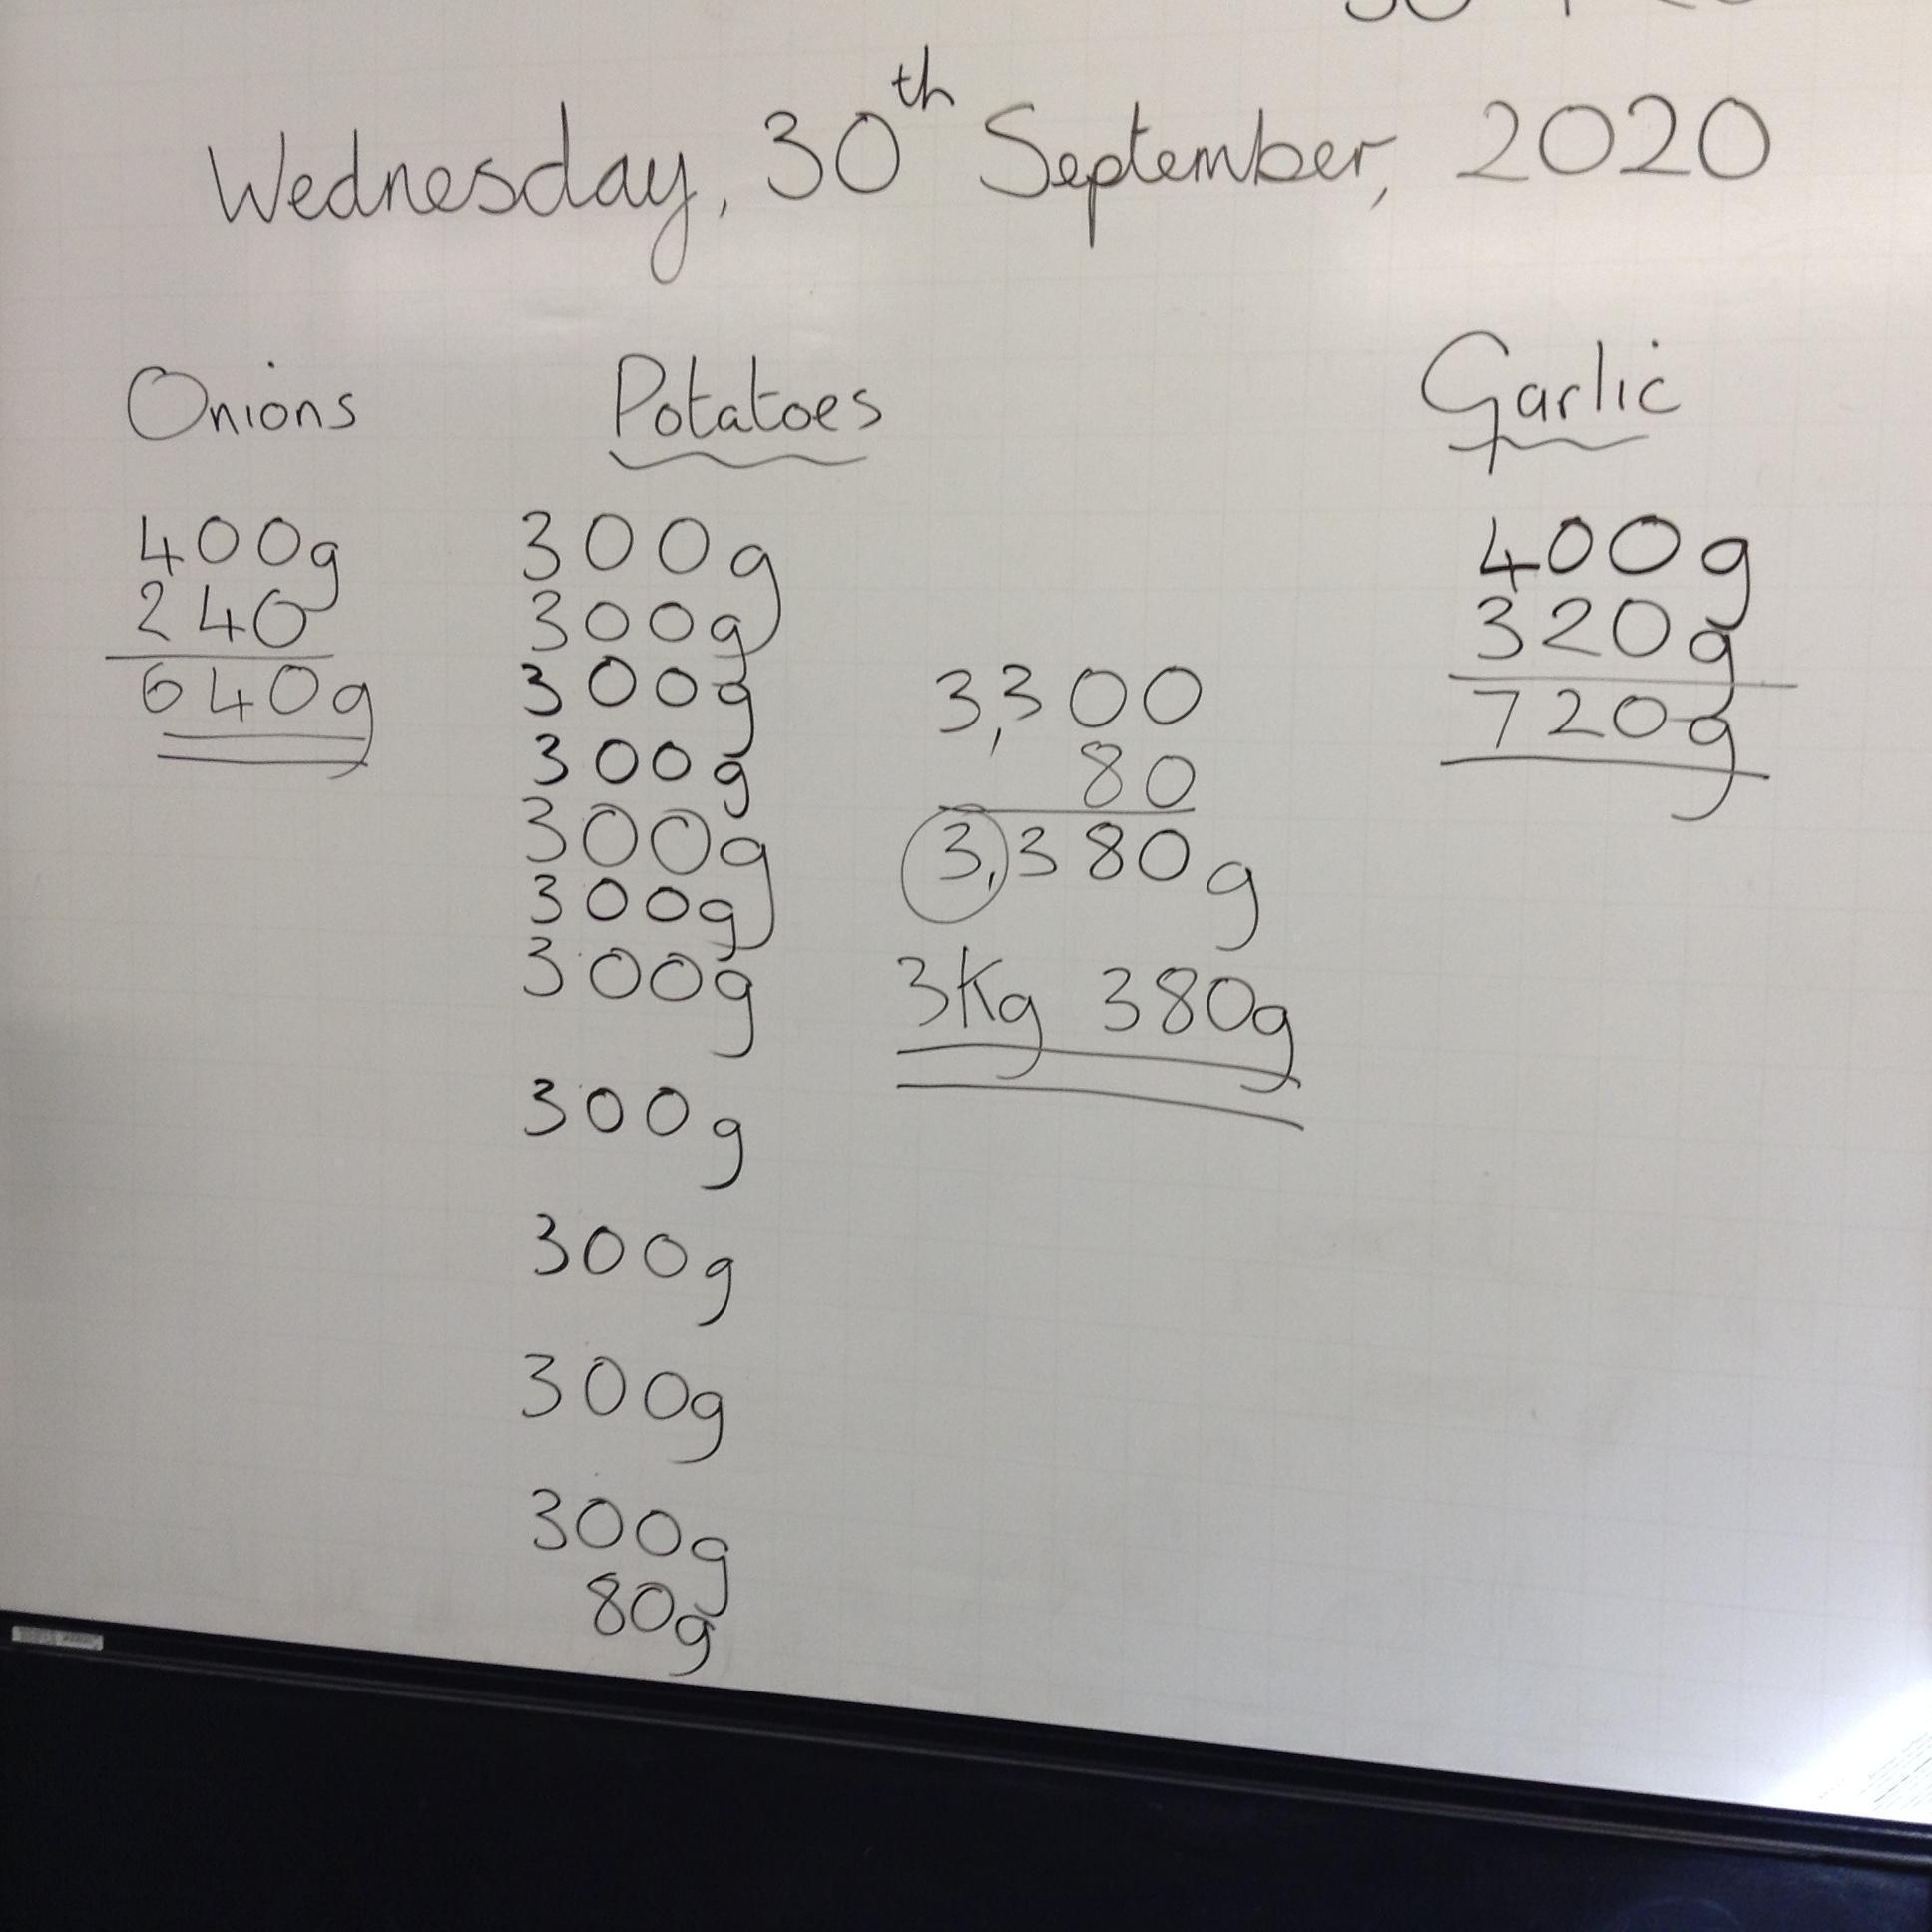 Wednesday, 30th September, 2020
Onions
400g
240
640g
Potatoes
300g
300g
300g
300g
300g
300g
300g
300g
300g
300g
300g
80g
3,300
80
3,380g
3Kg 380g
Garlic
400g
320g
720g